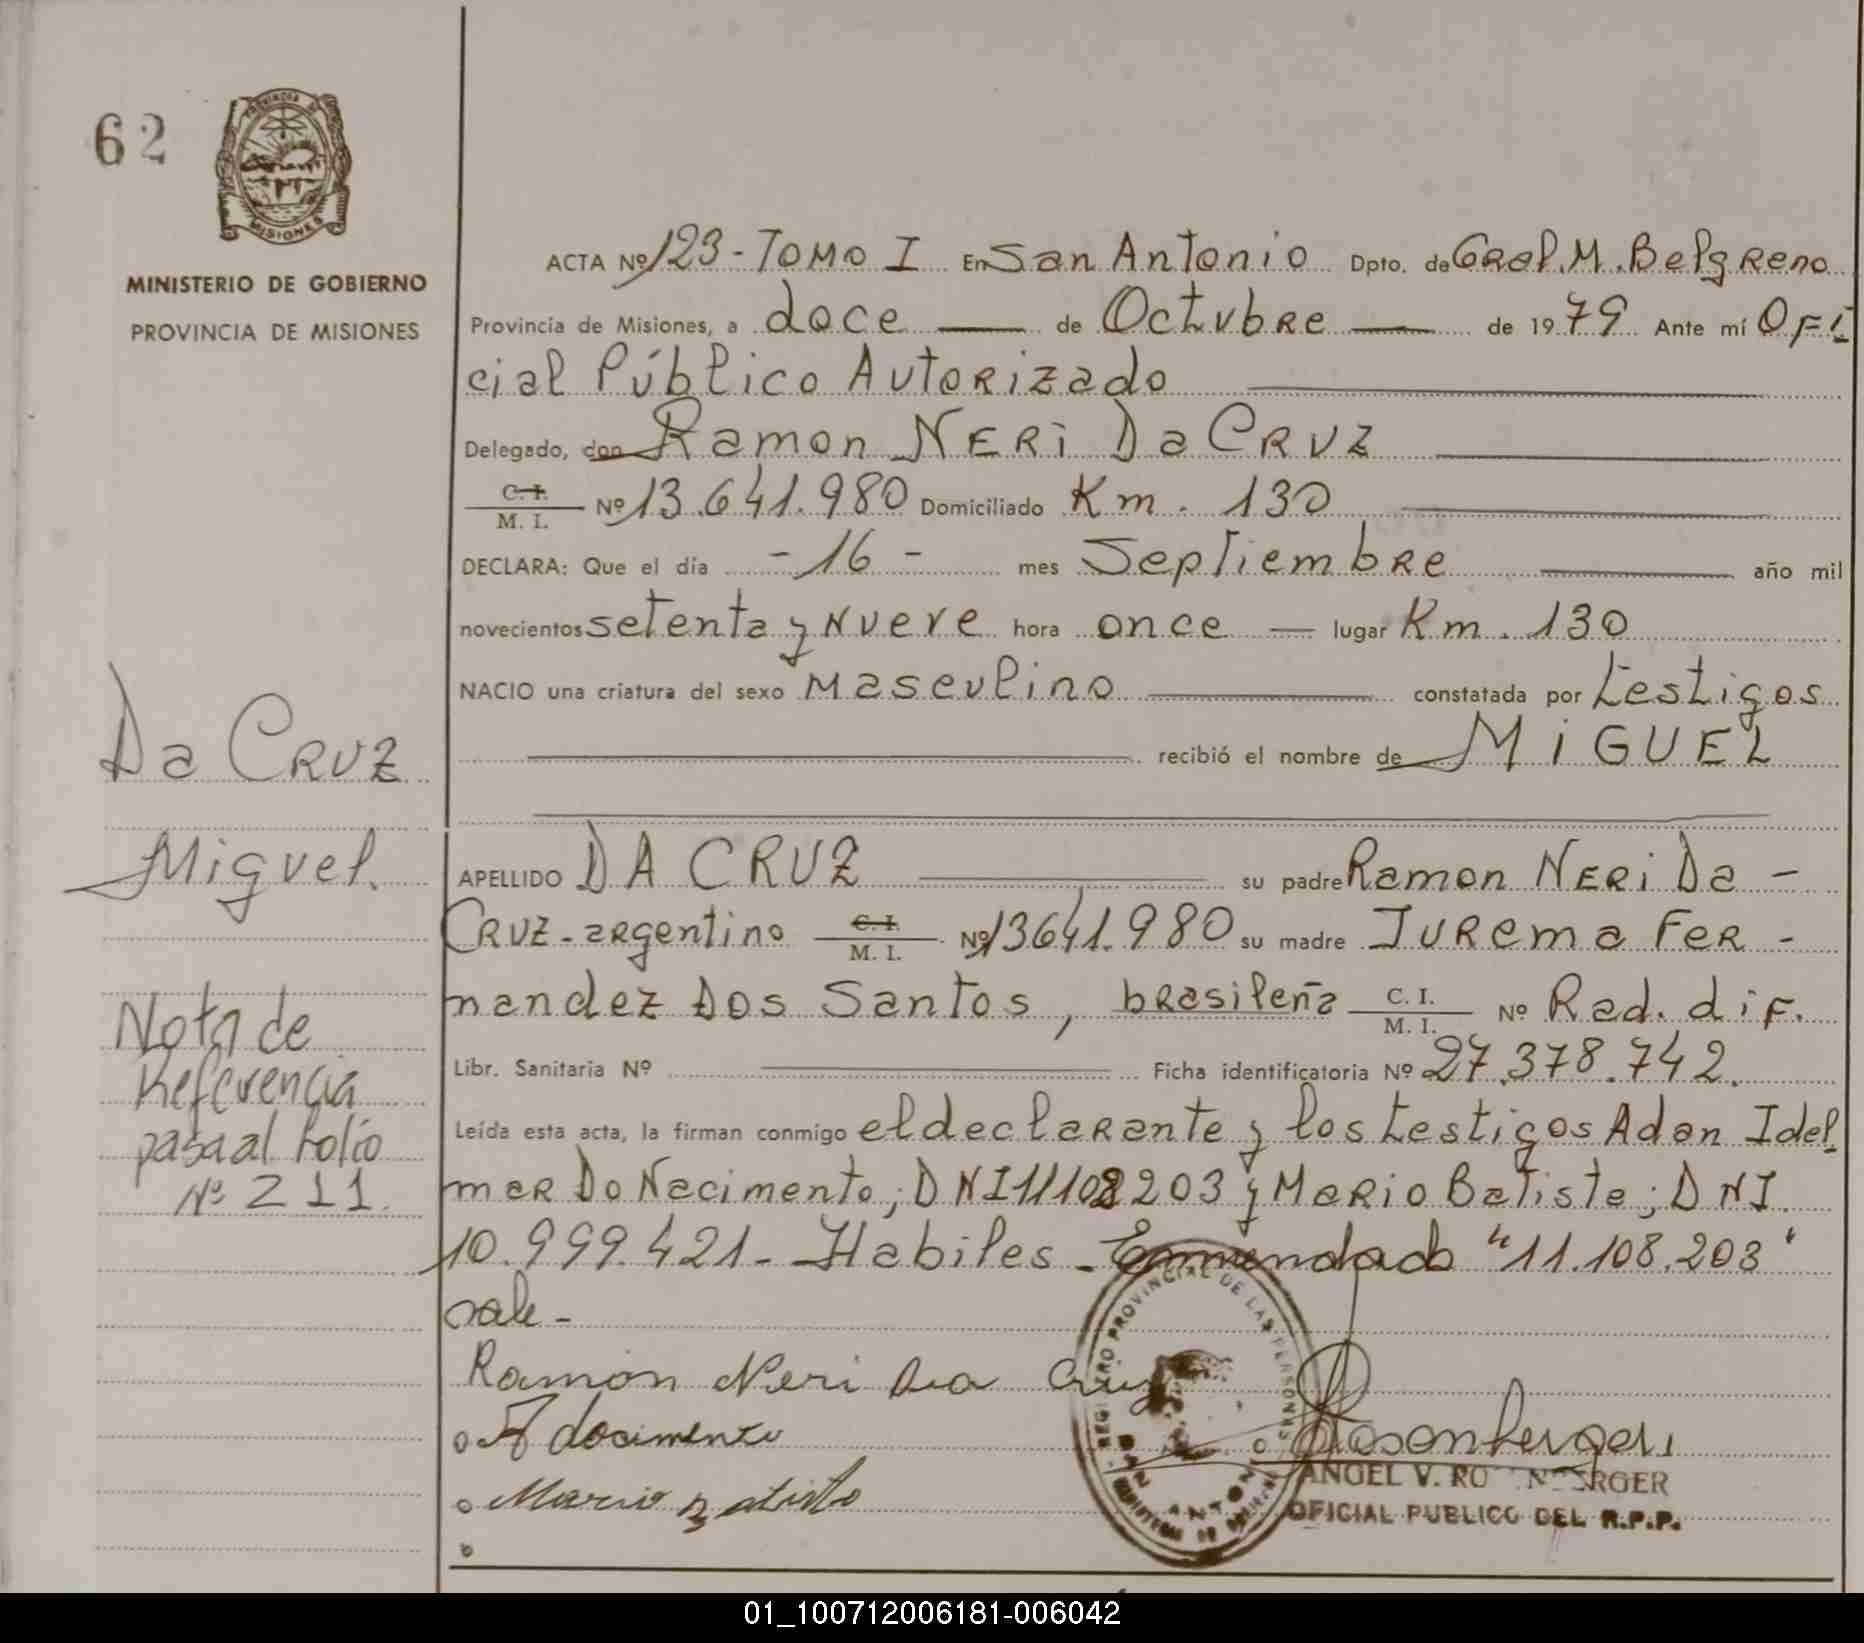 62
PROVINCIA DE
MISIONES
MINISTERIO DE GOBIERNO
PROVINCIA DE MISIONES
Da CRUZ
Miguel.
Nota de
Referencia
pasa al Folio
Nº 211
ACTA Nº 123 - TOMO I En San Antonio Dpto. de GRal. M. BelgRano
Provincia de Misiones, a doce de OctubRe de 1979 Ante mí OFi
cial Público AutoRizado
Delegado, don Ramon NERi Da CRUZ
C. I.
M. I. Nº 13.641.980 Domiciliado Km. 130
DECLARA: Que el día - 16 - mes SeptiembRe año mil
novecientos setenta y Nueve hora once lugar Km. 130
NACIO una criatura del sexo masculino constatada por testigos
recibió el nombre de MiGUEL
APELLIDO DA CRUZ su padre Ramon NERi Da -
CRUZ - aRgentino C. I.
M. I. Nº 13641.980 su madre JURema FeR -
nandez Dos Santos, bRasileña C. I.
M. I. Nº Rad. dif.
Libr. Sanitaria Nº Ficha identificatoria Nº 27.378.742.
Leída esta acta, la firman conmigo el declaRante y los testigos Adan Idel
maR Do Nacimento; DNI 11108203 y MaRio Batista; DNI
10.999.421 - Habiles - Enmendado "11.108.203"
vale -
Ramon Neri Da Cruz
A docimento
Mario Batista
Rosenberger
REGISTRO PROVINCIAL DE LAS PERSONAS
SAN ANTONIO
ANGEL V. RO N ERGER
OFICIAL PUBLICO DEL R.P.P.
01_100712006181-006042